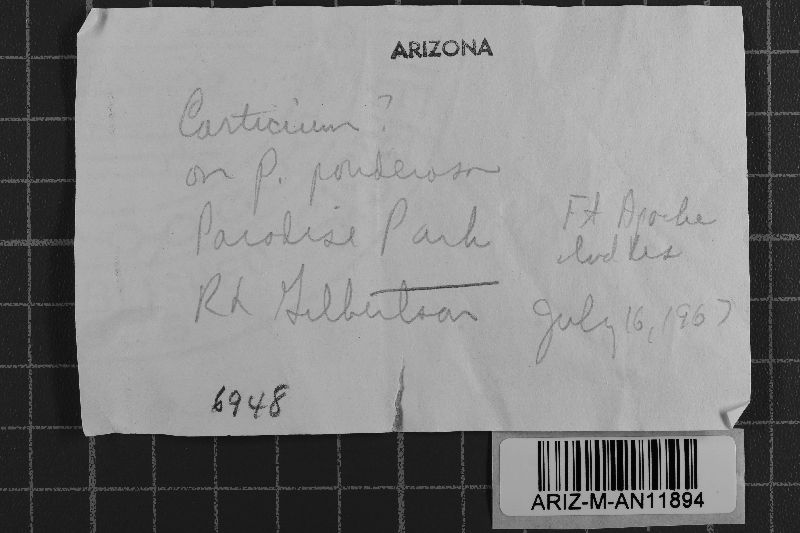 ARIZONA
Corticium ?
on P. ponderosa
Paradise Park
Ft Apache
RL Gilbertson
July 16, 1967
6948
ARIZ-M-AN11894